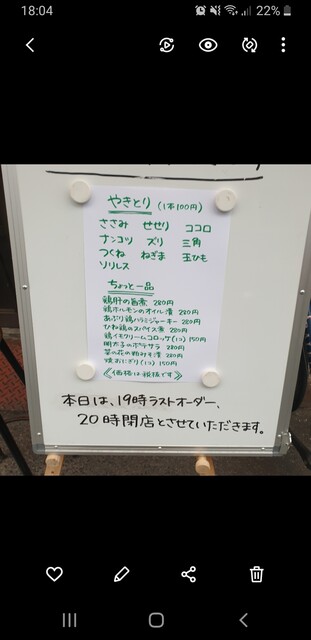 18:04
22%
やきとり (1本100円)
ささみ せせり ココロ
ナンコツ ズリ 三角
つくね ねぎま 玉ひも
ソリレス
ちょっと一品
鶏肝の旨煮 280円
鶏ホルモンのオイル漬 280円
あぶり鶏ハラミジャーキー 280円
ひね鶏のスパイス煮 280円
鶏イモクリームコロッケ(1コ) 150円
明太子のポテサラ 280円
菜の花の粕みそ漬 280円
焼おにぎり(1コ) 150円
《価格は税抜です》
本日は、19時ラストオーダー、
20時閉店とさせていただきます。